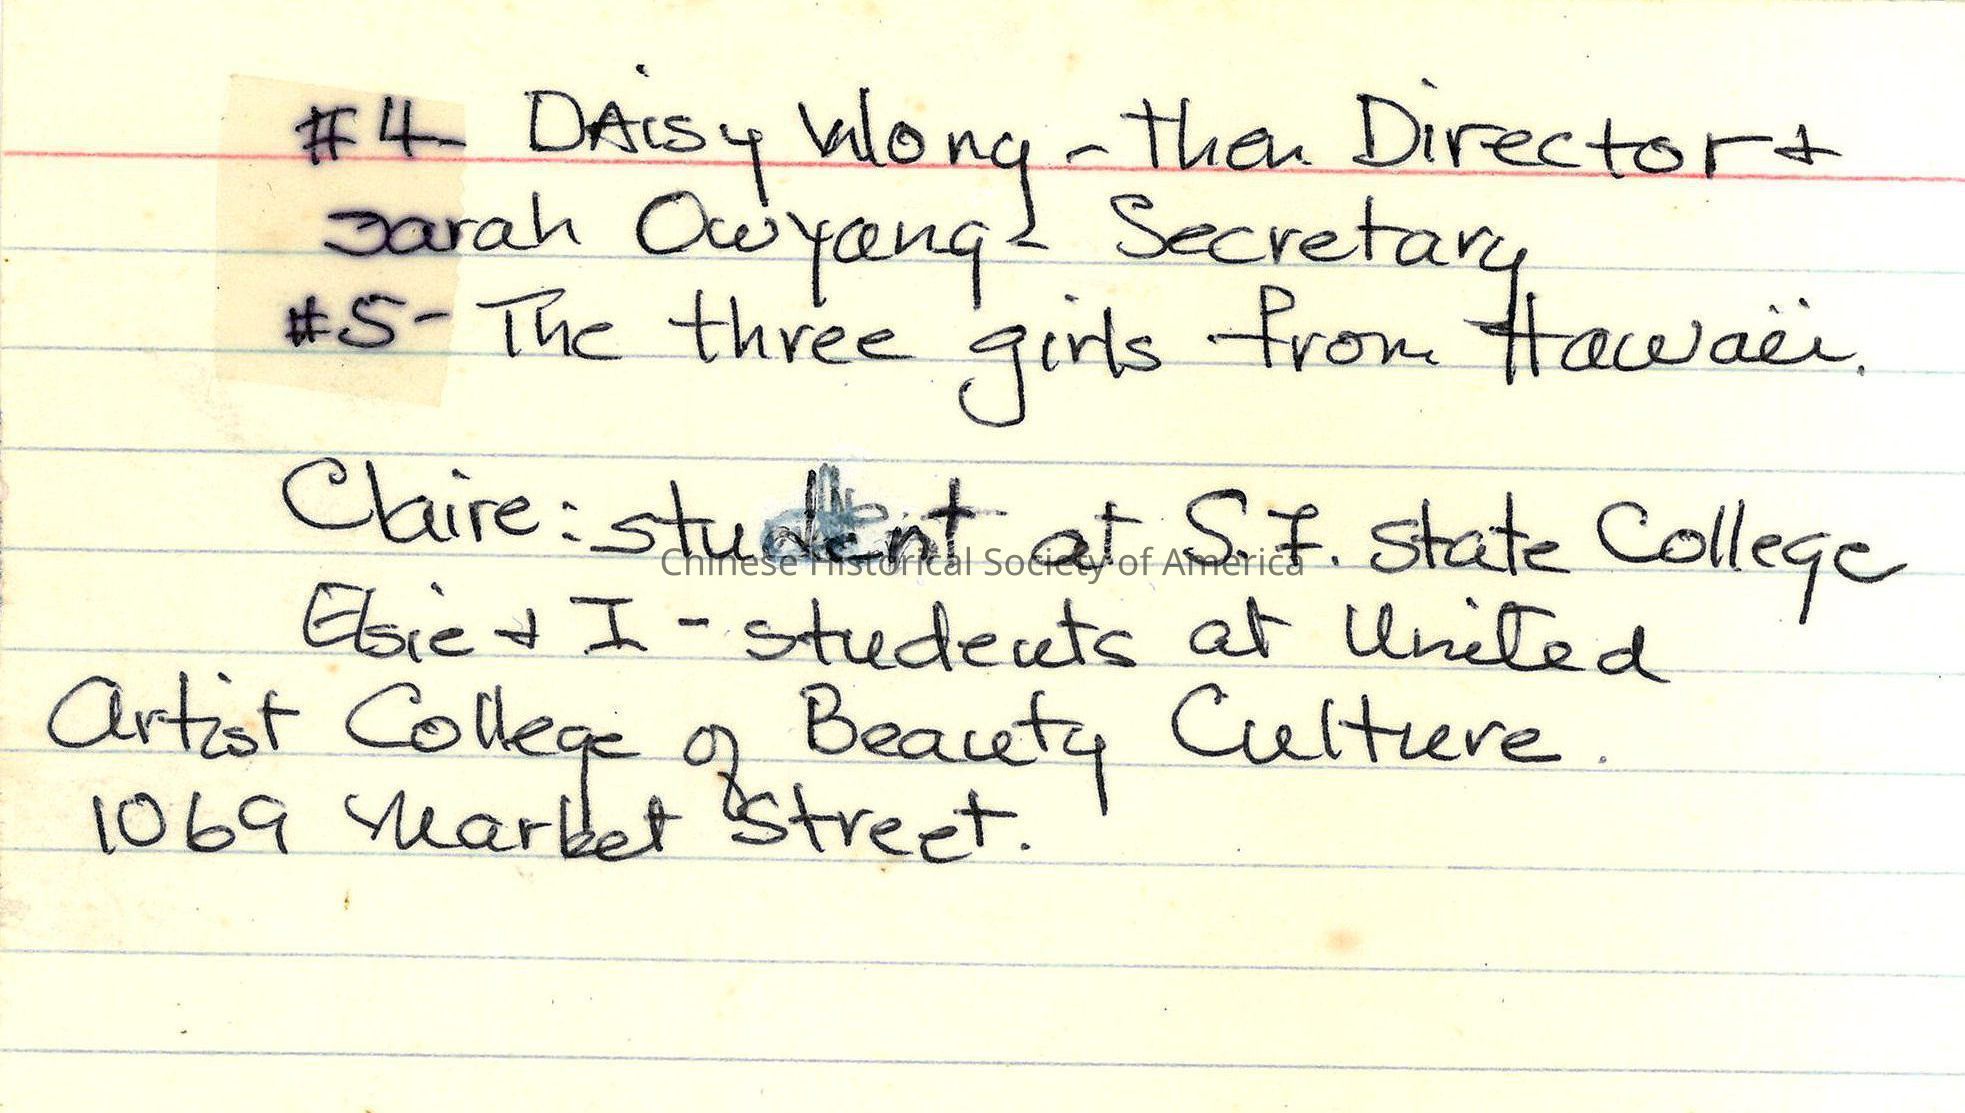 #4- DAisy Wong - then Director &
Sarah Owyang - Secretary
#5- The three girls from Hawaii.
Claire: student at S.F. State College
Chinese Historical Society of America
Elsie & I - students at United
Artist College of Beauty Culture.
1069 Market Street.